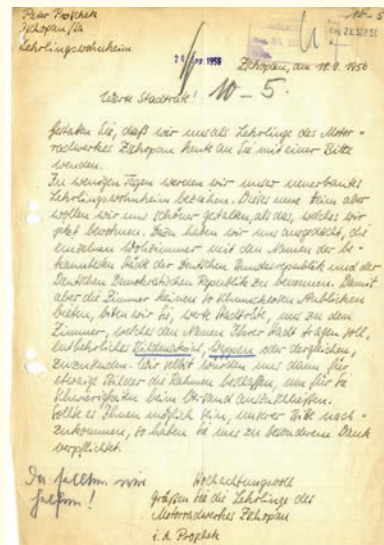 Peter Prophet
Zschopau/Sa
Lehrlingswohnheim
10-5
Zschopau, am 18.9.1956
Werte Stadträte!
10-5.
Gestatten Sie, daß wir uns als Lehrlinge des Motor-
radwerkes Zschopau heute an Sie mit einer Bitte
wenden.
In wenigen Tagen werden wir unser neuerbautes
Lehrlingswohnheim beziehen. Dieses neue Heim aber
wollen wir uns schöner gestalten, als das, welches wir
jetzt bewohnen. Dazu haben wir uns ausgedacht, die
einzelnen Wohnzimmer mit den Namen der be-
kanntesten Städte der Deutschen Bundesrepublik und der
Deutschen Demokratischen Republik zu benennen. Damit
aber die Zimmer keinen so schmucklosen Anblick
bieten, bitten wir Sie, werte Stadträte, uns zu dem
Zimmer, welches den Namen Ihrer Stadt tragen soll,
entbehrliches Bildmaterial, Wappen oder dergleichen,
zuzusenden. Wir selbst würden uns dann für
etwaige Bilder die Rahmen beschaffen, um für Sie
Schwierigkeiten beim Versand auszuschließen.
Sollte es Ihnen möglich sein, unserer Bitte nach-
zukommen, so haben Sie uns zu besonderem Dank
verpflichtet.
Hochachtungsvoll
grüßen Sie die Lehrlinge des
Motorradwerkes Zschopau
i. A. Prophet
Da sollten wir
helfen!